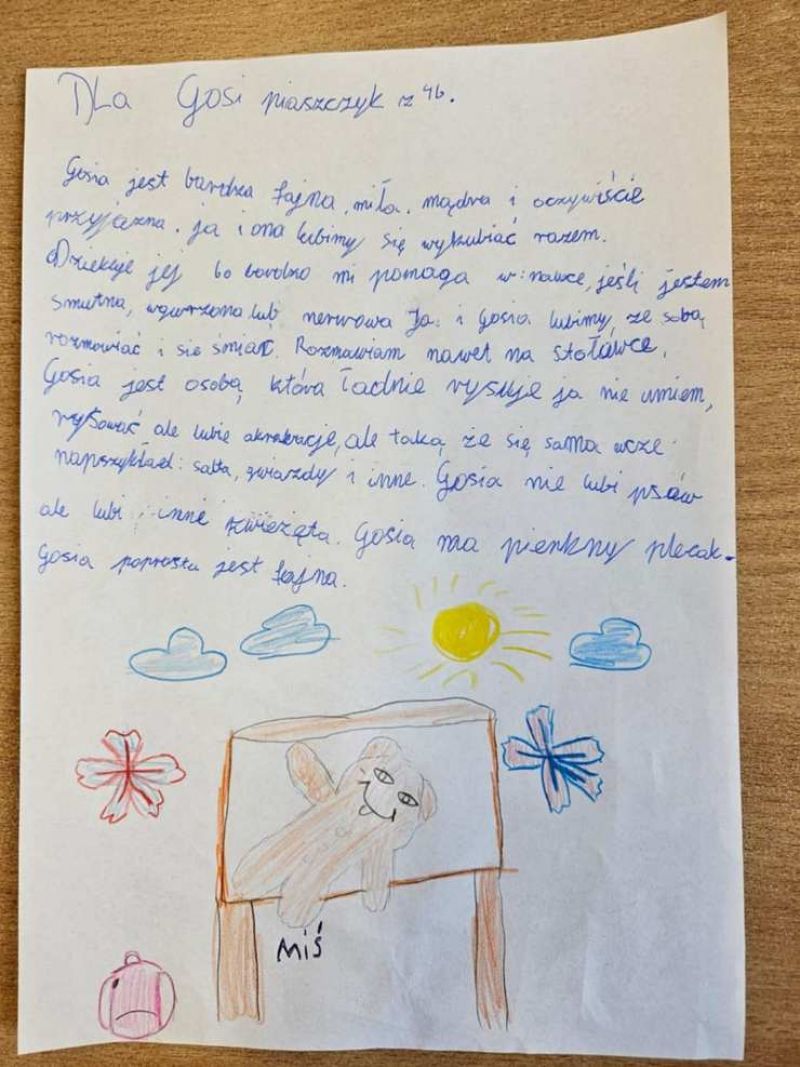 DLa Gosi piaszczyk z 4b.
Gosia jest bardzo fajna, miła, mądra i oczywiście
przyjazna. ja i ona lubimy się wykubiać razem.
Dziekuje jej bo bardzo mi pomaga w nauce, jeśli jestem
smutna, wqurzona lub nerwowa Ja i Gosia lubimy ze sobą
rozmawiać i sie śmiać. Rozmawiam nawet na stołówce.
Gosia jest osobą która ładnie rysuje ja nie umiem,
rysować ale lubie akrobacje, ale taką że się sama ucze
naprzykład: salta, gwiazdy i inne. Gosia nie lubi psów
ale lubi inne zwieżęta. Gosia ma pienkny plecak.
Gosia poprostu jest fajna.
Miś